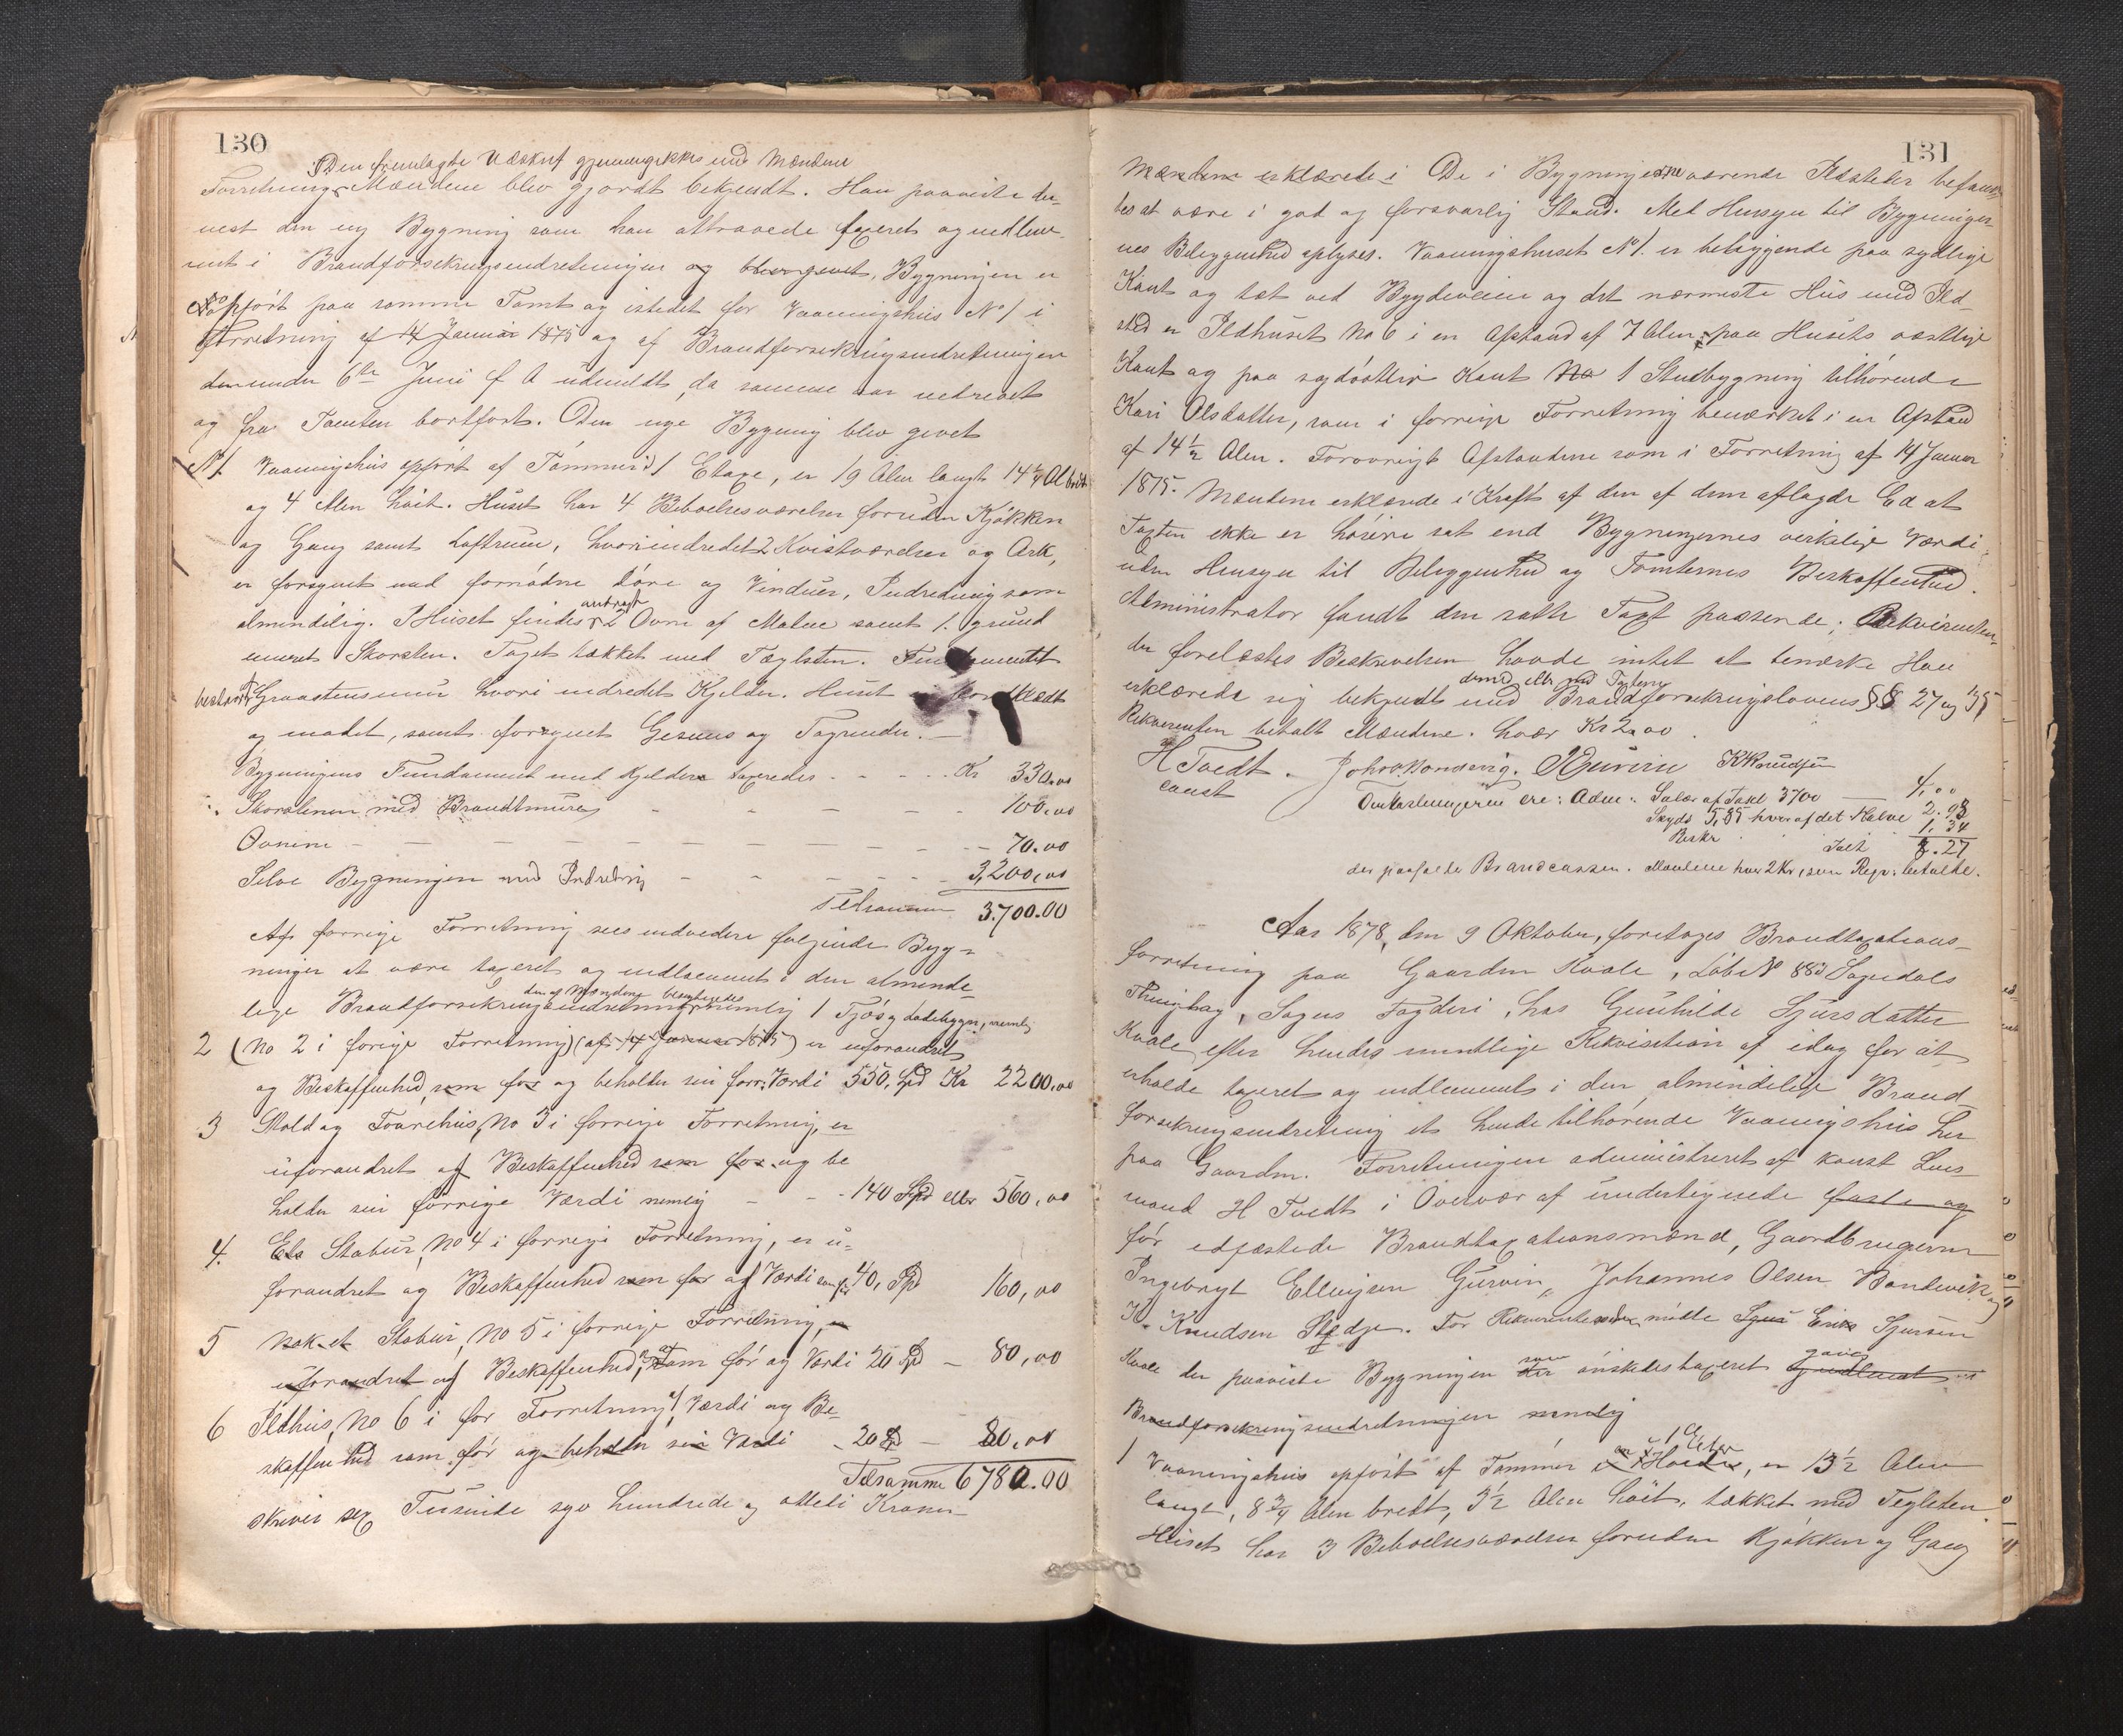 130
Den fremlagte Udskrift gjennemgikkes med Mændene
Forretnings Mændene blev gjordt bekjendt. Han paaviste der-
næst den ny Bygning som han attraaede taxeret og indlem-
met i Brandforsikringsindretningen og Bygningen er
opført paa samme Tomt og istedet for Vaaningshus No 1 i
Forretning af 14 Januar 1875 og af Brandforsikringsindretningen
den under 6te Juni f A udmeldt, da samme var nedrevet
og fra Tomten bortført. Den nye Bygning blev givet
No 1 Vaaningshus opført af Tømmer i 1 Etage, er 19 Alen langt 14 1/4 Al bredt
og 4 Alen høit. Huset har 4 Beboelsesværelser foruden Kjøkken
og Gang samt Loftrum, hvori indredet 2 Kvistværelser og Ark,
er forsynet med fornødne Døre og Vinduer, Indredning som
almindelig. I Huset findes anbragt 2 Ovne af Malm samt 1 grund
muret Skorsten. Taget tækket med Tæglsten. Fundamentet
bestaar af Graastensmur hvori indredet Kjelder. Huset er bordklædt
og malet, samt forsynet Gesims og Tagrender.
Bygningens Fundament med Kjelder taxeredes - - - Kr 330.00
Skorstenen med Brandtmure - - - - 100,00
Ovnene - - - - - 70.00
Selve Bygningen med Indredning - - - - 3,200,00
Tilsammen 3.700.00
Af forrige Forretning sees endvidere følgende Byg-
ninger at være taxeret og indlemmet i den alminde-
den af Mændene besigtigedes
lige Brandforsikringsindretning nemlig 1 Fjøs og Ladebygn, nemlig
2 (No 2 i forrige Forretning) (af 14 Januar 1875) er uforandret
og Beskaffenhed som før og beholder sin forr. Værdi 550, Spd Kr 2200,00
3 Stald og Fourehus, No 3 i forrige Forretning, er
uforandret af Beskaffenhed som før og be
holder sin forrige Værdi nemlig - - 140 Spd eller 560,00
4. Ets Stabur, No 4 i forrige Forretning, er u-
forandret og Beskaffenhed som før af Værdi som før 40, Spd 160,00
5 Nok et Stabur, No 5 i forrige Forretning, er
uforandret af Beskaffenhed, som før og Værdi 20 Spd - 80,00
6 Ildhus, No 6 i før Forretning, Værdi og Be-
skaffenhed som før og beholder sin Værdi - 20 Spd - 80,00
Tilsamme 6780.00
skriver sex Tusinde syv hundrede og otteti Kroner
131
Mændene erklærede i De i Bygningerne værende Ildsteder befand-
tes at være i god og forsvarlig Stand. Med Hensyn til Bygninger-
nes Beliggenhed oplyses. Vaaningshuset No 1. er beliggende paa sydlige
Kant og tæt ved Bygdeveien og det nærmeste Hus med Ild-
sted er Ildhuset No 6 i en Afstand af 7 Alen paa Husets vestlige
Kant og paa sydøstlig Kant No 1 Stuebygning tilhørende
Kari Olsdatter, som i forrige Forretning bemærket i en Afstand
af 14 1/2 Alen. Forøvrigt Afstandene som i Forretning af 14 Januar
1875. Mændene erklærede i Kraft af den af dem aflagde Ed at
Taxten ikke er høiere sat end Bygningernes virkelige Værdi
uden Hensyn til Beliggenhed og Tomternes Beskaffenhed.
Administrator fandt den satte Taxt passende. Rekvirenten
der forelæstes Beskrivelsen havde intet at bemærke Han
erklærede sig bekjendt med Brandforsikringslovens §§ 27 og 35
Rekvirenten betalt Mændene. hver Kr 2,00.
H Tvedt. Joh. O. Vandevig. I E Gurvin K Knudsen
const
Omkostningerne ere: Adm: Salær af Taxt 3700 — 4,00
Skyds 5,85 hvoraf det Halve 2.93
Beskr 1,34
Ialt 8.27
der paafalder Brandcassen. Mændene hver 2 Kr, som Reqv. betalte.
Aar 1878, den 9 Oktober, foretoges Brandtaxations-
forretning paa Gaarden Kvale, Løbe No 88 Sogndals
Thinglag, Sogns Fogderi, hos Gunhilde Sjursdatter
Kvale efter hendes mundtlige Rekvisition af idag for at
erholde taxeret og indlemmet i den almindelige Brand-
forsikringsindretning et hende tilhørende Vaaningshus her
paa Gaarden. Forretningen administreret af konst Lens-
mand H Tvedt i Overvær af undertegnede faste og
før edfæstede Brandtaxationsmænd, Gaardbrugerne
Ingebrigt Ellingsen Gurvin, Johannes Olsen Vandevik og
K. Knudsen Stedje. For Rekvirentinden mødte Sjur Erik Sjursen
Kvale der paaviste Bygningen som ønskedes taxeret
Brandforsikringsindretningen nemlig
1 Vaaningshus opført af Tømmer i 1 Etage, er 13 1/2 Alen
langt, 8 3/4 Alen bredt, 3 1/2 Alen høit, tækket med Teglsten.
Huset har 3 Beboelsesværelser foruden Kjøkken og Gang